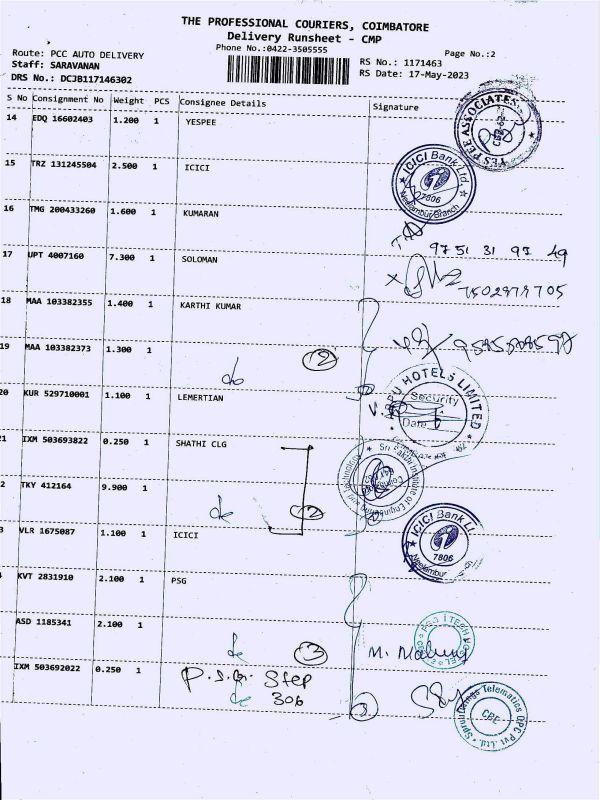 THE PROFESSIONAL COURIERS, COIMBATORE
Delivery Runsheet - CMP
Phone No.:0422-3505555
Page No.:2
Route: PCC AUTO DELIVERY
Staff: SARAVANAN
DRS No.: DCJB117146302
RS No.: 1171463
RS Date: 17-May-2023
S No Consignment No Weight PCS Consignee Details Signature
14 EDQ 16602403 1.200 1 YESPEE
YES PEE ASSOCIATES
15 TRZ 131245504 2.500 1 ICICI
ICICI Bank Ltd
7806
16 TMG 200433260 1.600 1 KUMARAN
9751 31 97 49
17 UPT 4007160 7.300 1 SOLOMAN
18 MAA 103382355 1.400 1 KARTHI KUMAR
19 MAA 103382373 1.300 1
do (2)
HOTELS LIMITED
Security
Date
20 KUR 529710001 1.100 1 LEMERTIAN
21 IXM 503693822 0.250 1 SHATHI CLG
Sri Sakthi Institute of Engineering and Technology
2 TKY 412164 9.900 1
(2)
3 VLR 1675087 1.100 1 ICICI
ICICI Bank
7806
KVT 2831910 2.100 1 PSG
ASD 1185341 2.100 1
(3)
IXM 503692022 0.250 1 P.S.G. Step
306
Telematics OPC Pvt. Ltd.
CBE